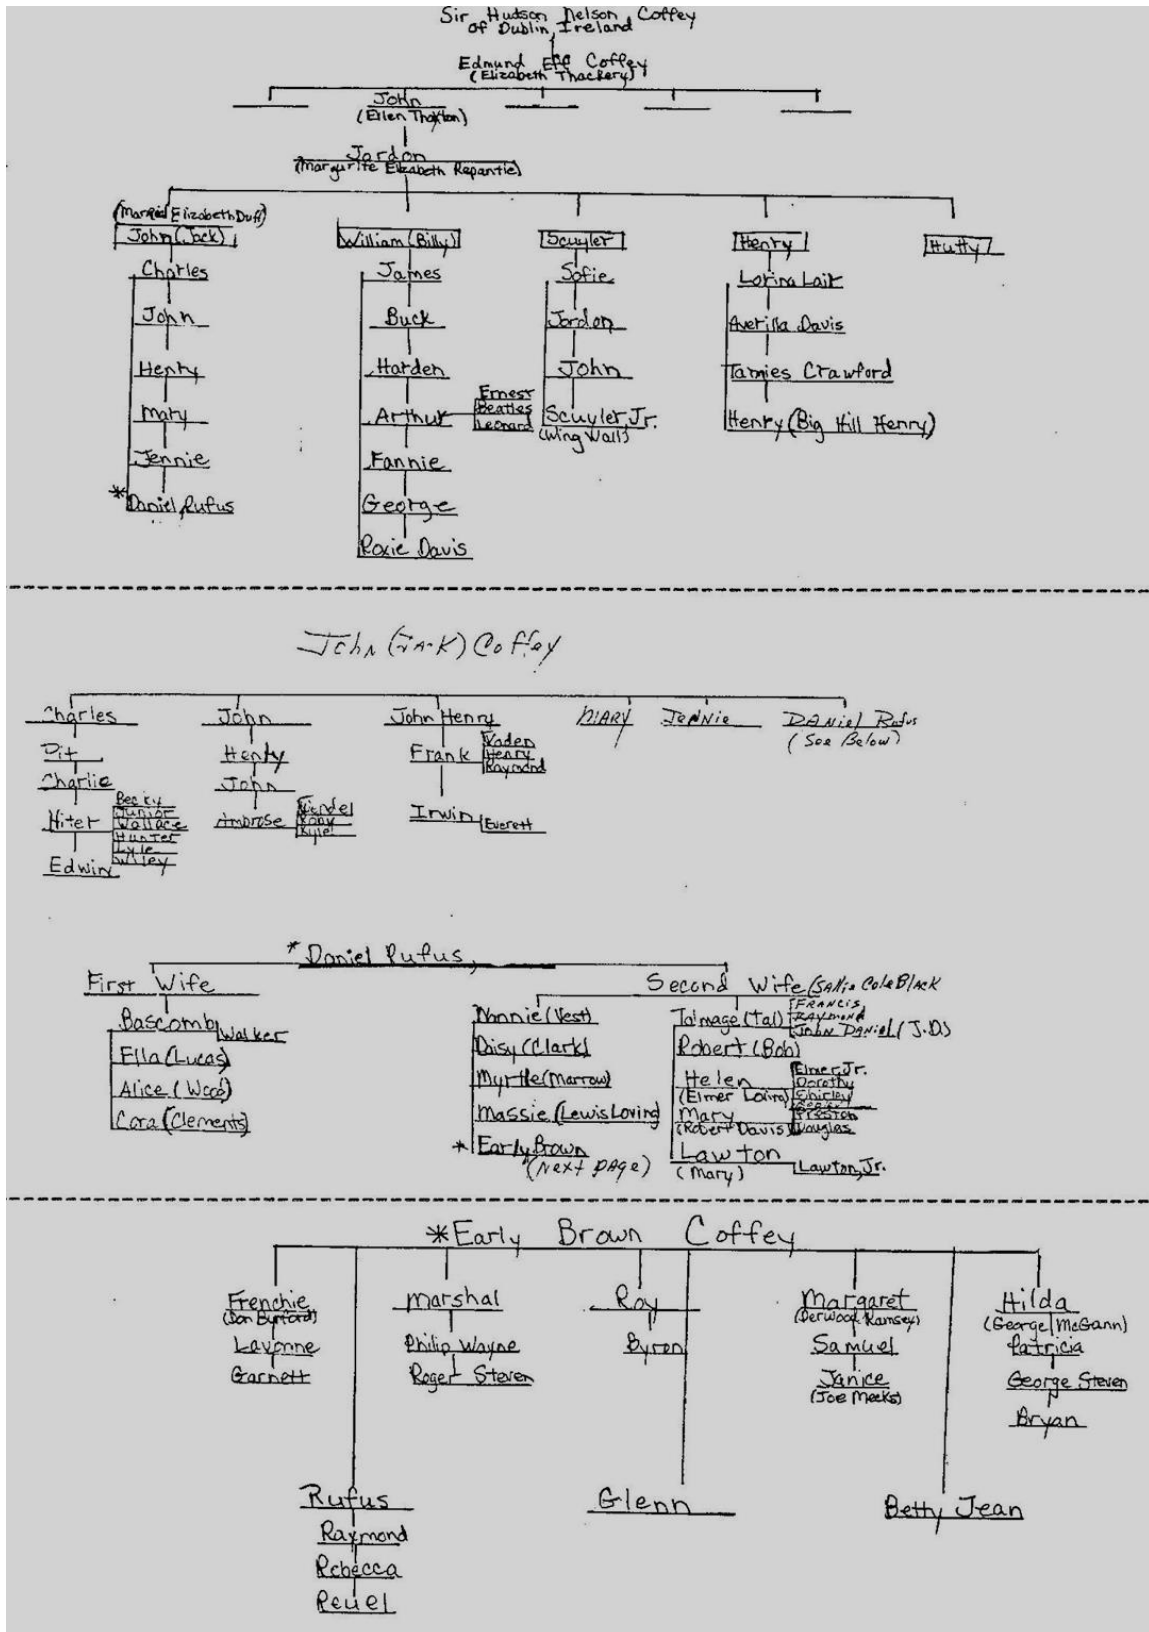 Sir Hudson Nelson Coffey
of Dublin, Ireland
Edmund Eff Coffey
(Elizabeth Thackery)
John
(Ellen Thaxton)
Jordon
(Margurite Elizabeth Repantie)
(Married Elizabeth Duff)
John (Jack)
Charles
John
Henry
Mary
Jennie
*Daniel Rufus
William (Billy)
James
Buck
Harden
Arthur
Ernest
Beatles
Leonard
Fannie
George
Roxie Davis
Scuyler
Sofie
Jordon
John
Scuyler, Jr.
(Wing Wall)
Henry
Lorina Lair
Averilla Davis
Tamies Crawford
Henry (Big Hill Henry)
Hutty
John (JACK) Coffey
Charles
Pit
Charlie
Hiter
Becky
Junior
Wallace
Hunter
Lyle
Wiley
Edwin
John
Henry
John
Ambrose
Kyle
John Henry
Frank
Vaden
Henry
Raymond
Irwin
Everett
MARY
JENNIE
DANiel Rufus
(See Below)
*Daniel Rufus,
First Wife
Bascomb
Walker
Ella (Lucas)
Alice (Wood)
Cora (Clements)
Second Wife (SAllie Cole BlAcK
Nannie (Vest)
Daisy (Clark)
Myrtle (Marrow)
Massie (Lewis Loving)
* Early Brown
(Next pAge)
Talmage (Tal)
FRANCIS
RAYMOND
JOHN DANIEL (J.D.)
Robert (Bob)
Helen
(Elmer Loving)
Elmer, Jr.
Dorothy
Shirley
Mary
(Robert Davis)
Preston
Douglas
Lawton
(Mary)
Lawton, Jr.
*Early Brown Coffey
Frenchie
(Don Burford)
Lavonne
Garnett
Marshal
Philip Wayne
Roger Steven
Roy
Byron
Margaret
(Derwood Ramsey)
Samuel
Janice
(Joe Meeks)
Hilda
(George McGann)
Patricia
George Steven
Bryan
Rufus
Raymond
Rebecca
Reuel
Glenn
Betty Jean